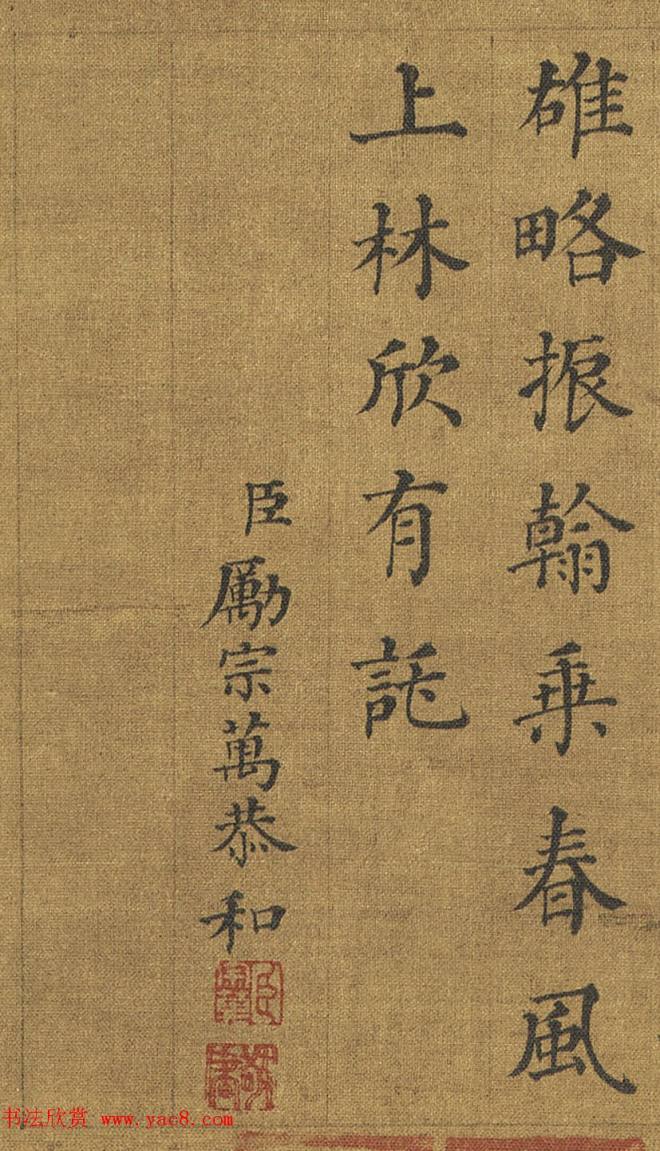 雄略振翰乗春風
上林欣有託
臣勵宗萬恭和
书法欣赏 www.yac8.com